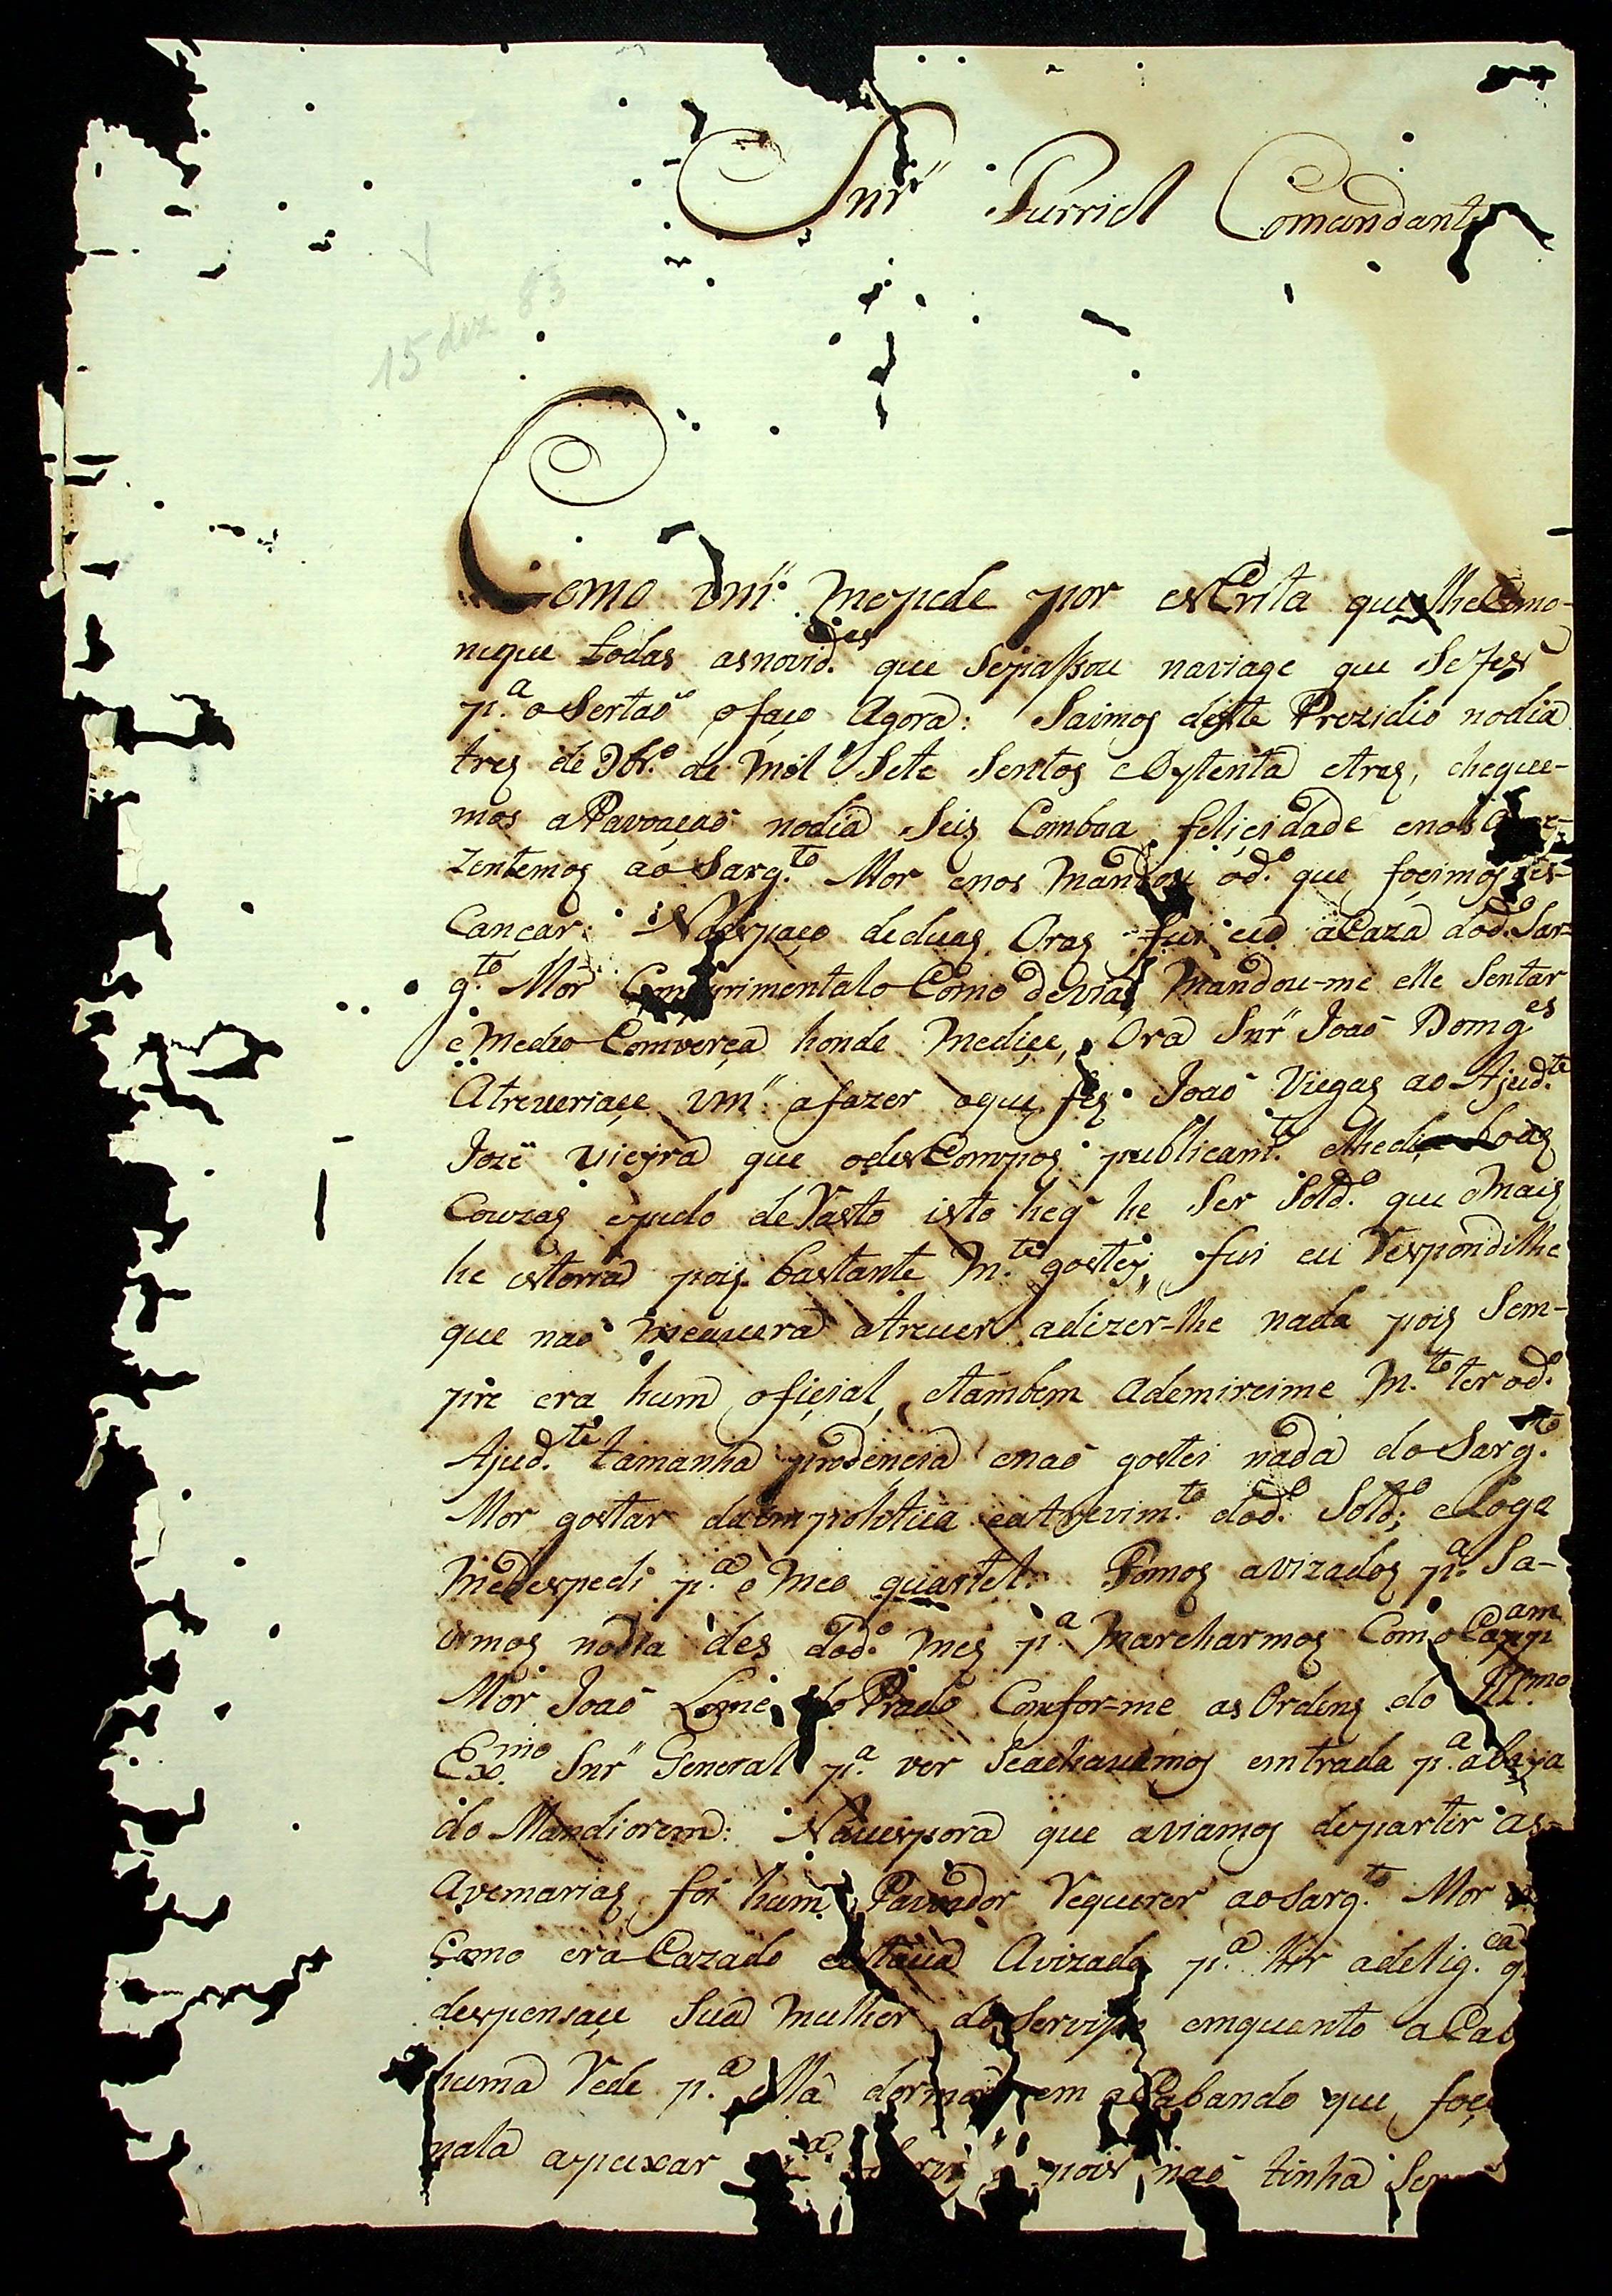 Snr̃ Furriel Comandante
15 dez 83
Como vm̃ mepede por escrita que lheComo-
nique todas asnovid.es que sepaßou naviage que se fes
p.a oSertaõ ofaço Agora: Saimos deste Prezidio nodia
tres de 9br.o de mil Sete Sentos eOytenta etres, chegue-
mos aPavoaçaõ nodia Seis Comboa feliçidade enos
zentemos aõ Sarg.to Mor enos mandou od.o que foçimos des-
Cançar: Noespaço deduas Oras fui eu aCaza dod.o Sar-
g.to Mor Comprimentalo Como devia, mandou-me elle Sentar
emedeo Comverça honde mediçe, Ora Snr̃ Joaõ Domg.es
Atreveriaçe vm̃ afazer oque fes Joaõ Viegas ao Ajud.te
Joze Vieyra que odesCompos publicam.te elhedice boas
Couzas epudo deVasto isto heq̃ he Ser Sold.o que omais
he istoria pois bastante m.to gostey, fui eu Respondilhe
que naõ meavera atrever adizer-lhe nada pois Sem-
pre era hum ofiçial, etambem Ademireime m.to ter od.o
Ajud.te tamanha prodencia enaõ gostei nada do Sarg.to
Mor gostar daimpolitica eatrevim.to dod.o Sold.o; eLogo
medespedi p.a o meo quartel. Fomos avizados p.a Sa-
irmos nodia des dod.o mes p.a marcharmos Com oCapp.am
Mor Joaõ Leme do Prado Comfor-me as Ordens do Ill.mo
Ex.mo Snr̃ General p.a ver Seachavamos emtrada p.a abaya
do Mandiorem: Navespora que aviamos departir as-
Avemarias foi hum Pavoador Requerer aoSarg.to Mor
Como era Cazado eestava Avizado p.a hir adelig.ca q̃
despensaçe Sua mulher do Serviço emquanto aCab
huma Rede p.a ella dormir em aCabando que foçe
nala apuxar pois naõ tinha